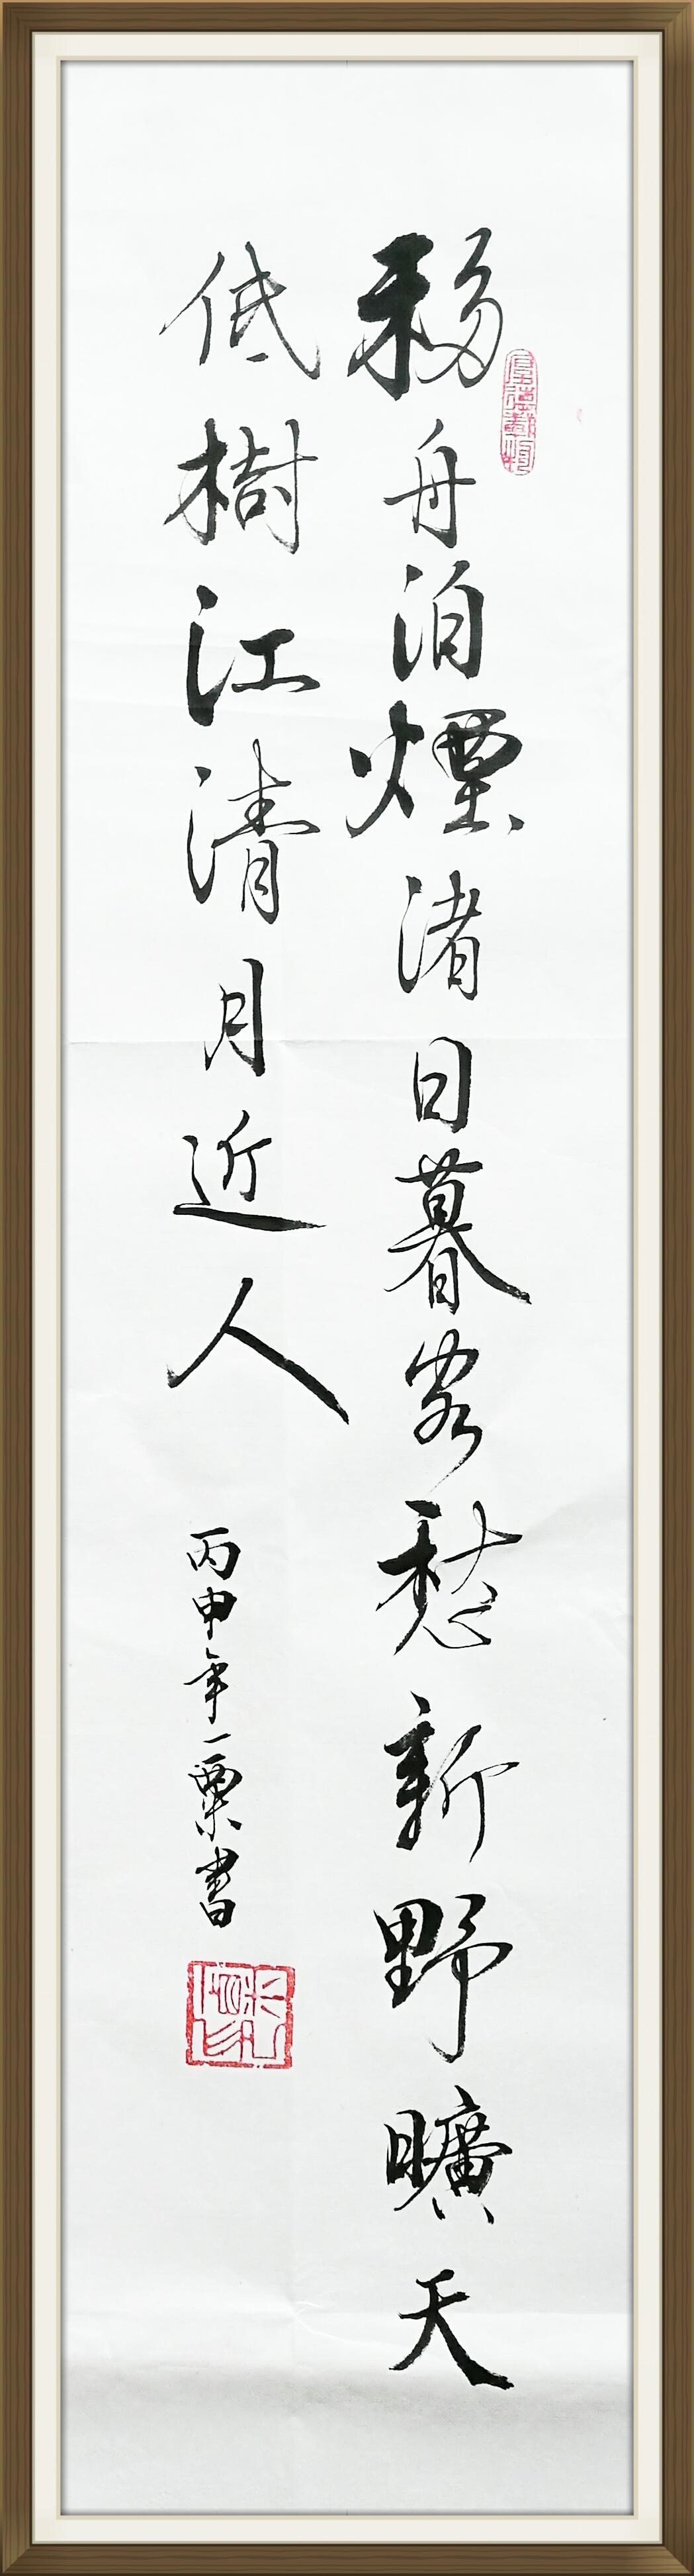 移舟泊煙渚日暮客愁新野曠天
低樹江清月近人
丙申年一粟書
厚德載物